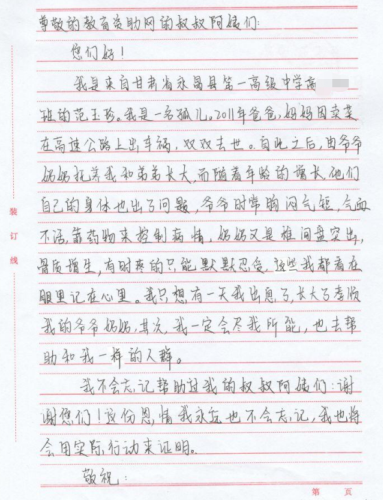 尊敬的教育资助网的叔叔阿姨们:
您们好!
我是来自甘肃省永昌县第一高级中学高
班的范玉珍。我是一名孤儿,2011年爸爸,妈妈因交菜
在高速公路上出车祸,双双去世。自此之后,由爷爷
奶奶抚养我和弟弟长大,而随着年龄的增长,他们
自己的身体也出了问题,爷爷时常胸闷气短,气血
不活,靠药物来控制病情,奶奶又是椎间盘突出,
骨质增生,有时疼的只能默默忍受,这些我都看在
眼里记在心里。我只想有一天我出息了,长大了孝顺
我的爷爷奶奶,其次,我一定会尽我所能,也去帮
助和我一样的人群。
我不会忘记帮助过我的叔叔阿姨们:谢
谢您们!这份恩情我永远也不会忘记,我也将
会用实际行动来证明。
敬祝:
装
订
线
第 页